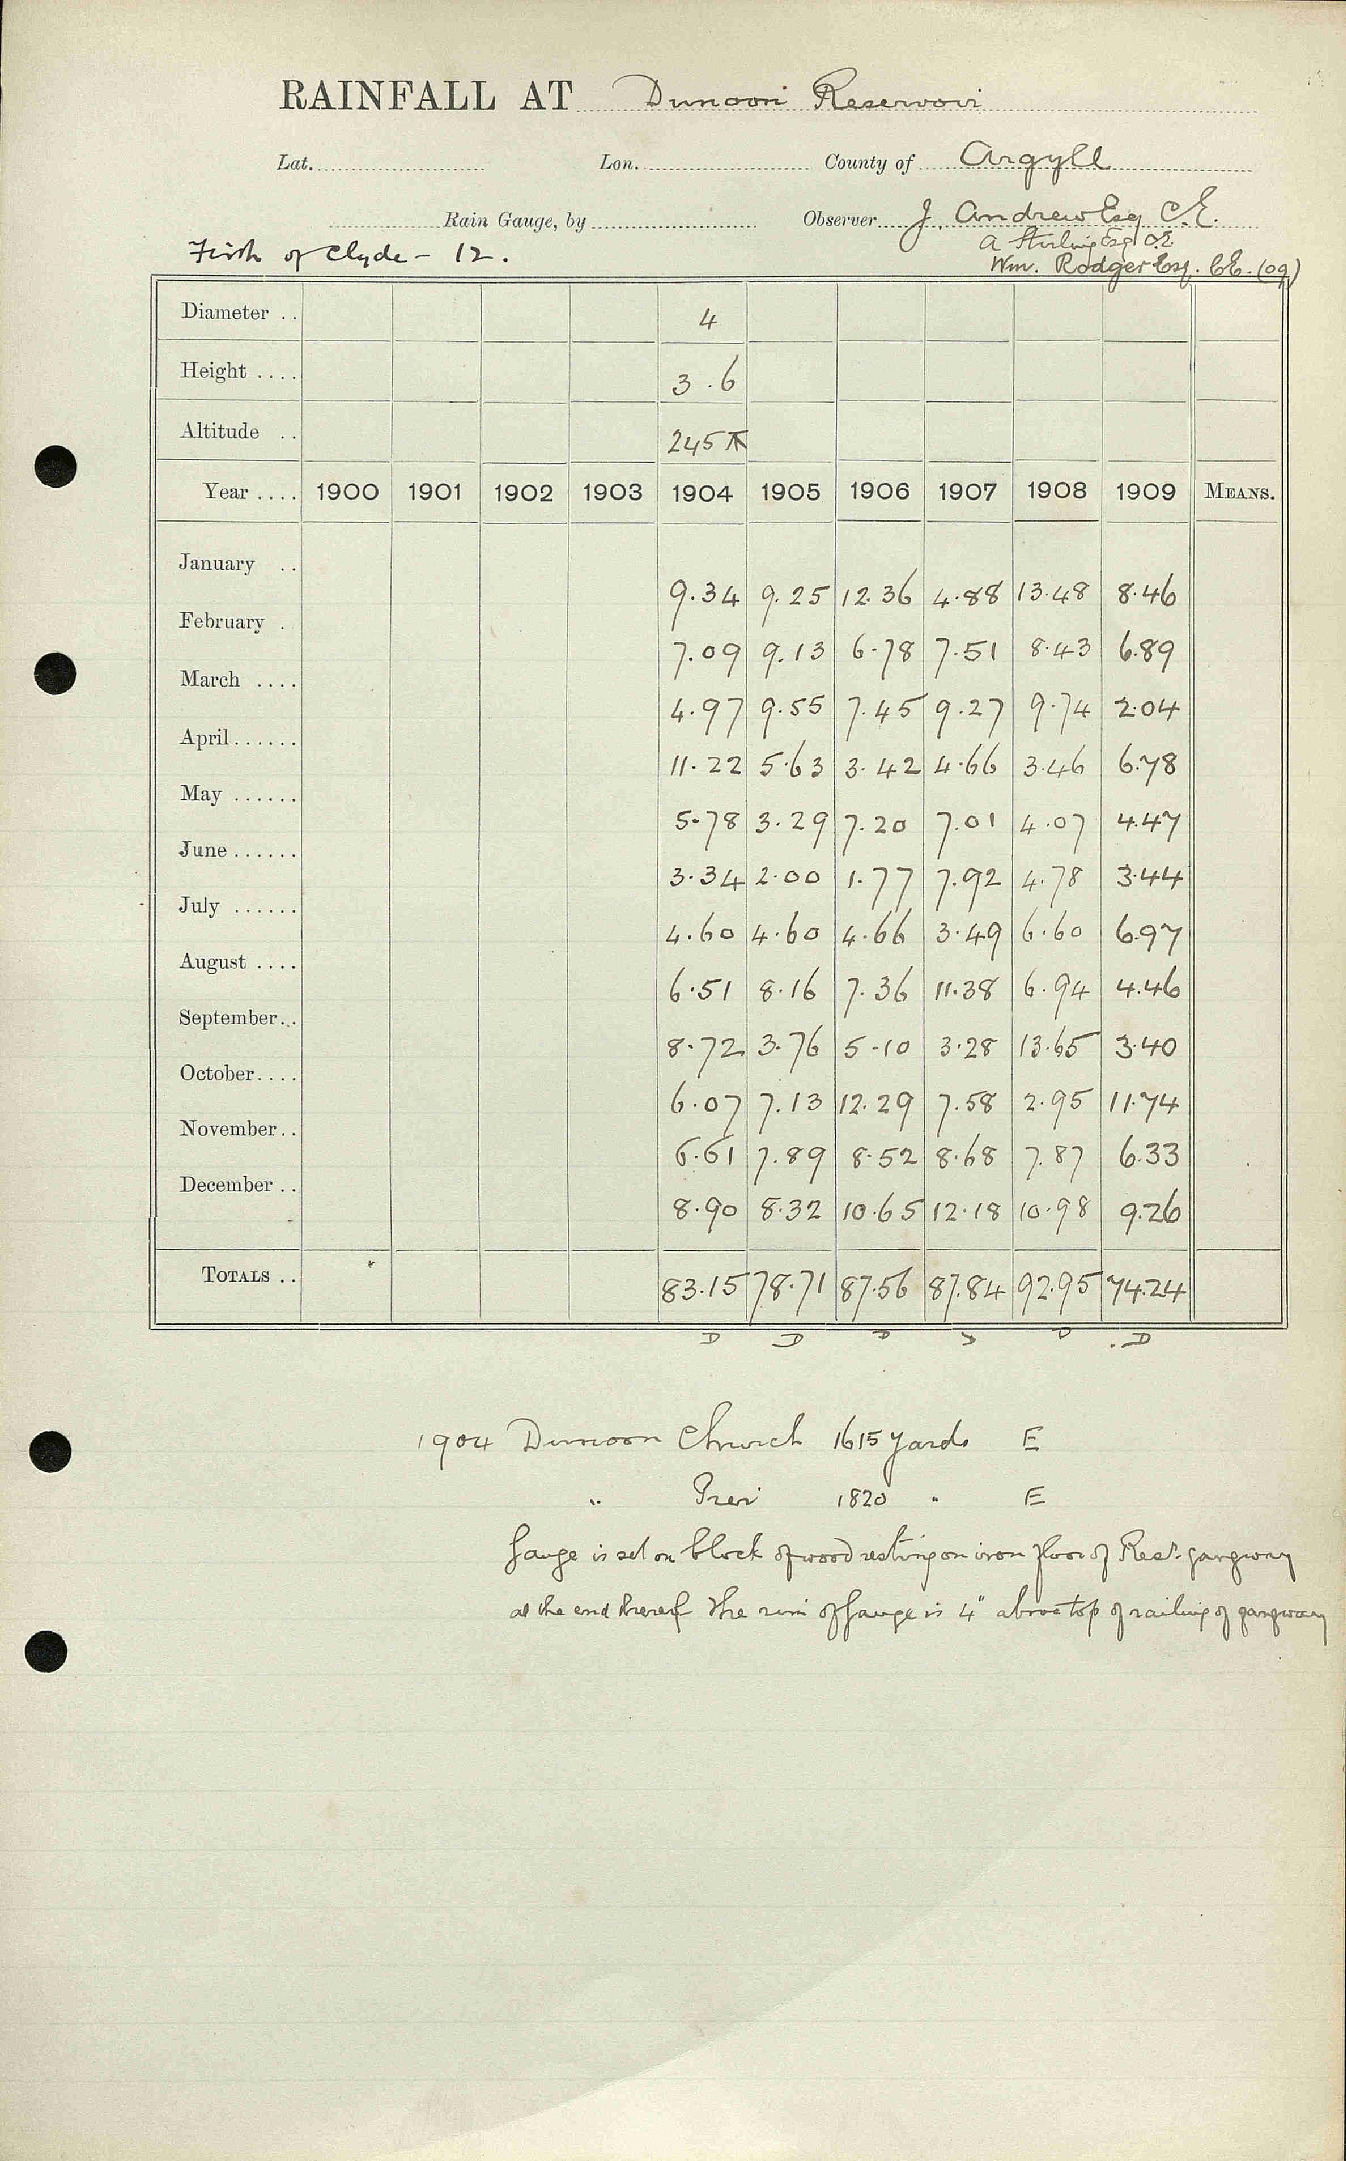 RAINFALL AT Dunoon Reservoir
Lat. Lon. County of Argyll
Rain Gauge, by Observer J. Andrew Esq C.E.
Firth of Clyde - 12. A Stirling Esq C.E.
Wm. Rodger Esq. C.E. (09)
Diameter .. 4
Height .... 3.6
Altitude .. 245 ft
Year .... 1900 1901 1902 1903 1904 1905 1906 1907 1908 1909 MEANS.
January .. 9.34 9.25 12.36 4.88 13.48 8.46
February . 7.09 9.13 6.78 7.51 8.43 6.89
March .... 4.97 9.55 7.45 9.27 9.74 2.04
April...... 11.22 5.63 3.42 4.66 3.46 6.78
May ...... 5.78 3.29 7.20 7.01 4.07 4.47
June...... 3.34 2.00 1.77 7.92 4.78 3.44
July ...... 4.60 4.60 4.66 3.49 6.60 6.97
August .... 6.51 8.16 7.36 11.38 6.94 4.46
September... 8.72 3.76 5.10 3.28 13.65 3.40
October.... 6.07 7.13 12.29 7.58 2.95 11.74
November.. 6.61 7.89 8.52 8.68 7.87 6.33
December .. 8.90 8.32 10.65 12.18 10.98 9.26
TOTALS .. 83.15 78.71 87.56 87.84 92.95 74.24
D D D D D .D
1904 Dunoon Church 1615 yards E
" Pier 1820 " E
Gauge is set on block of wood resting on iron floor of Resr. gangway
at the end thereof The rim of gauge is 4" above top of railing of gangway